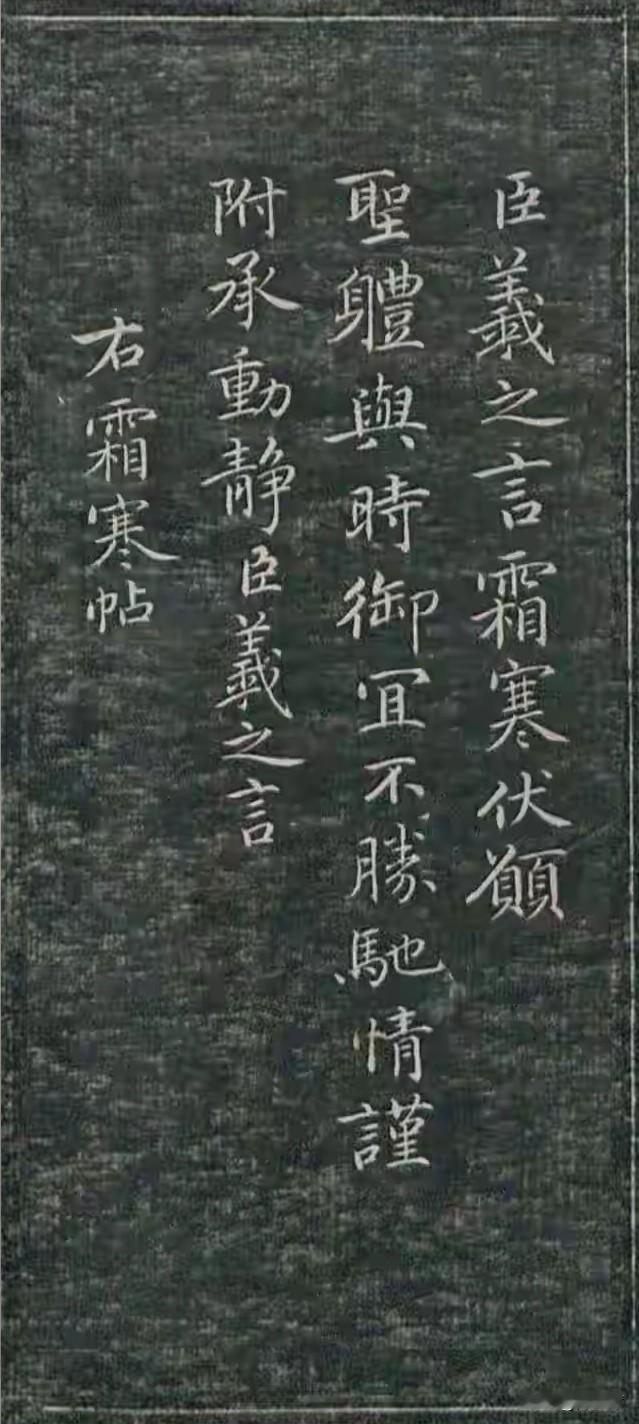 臣羲之言霜寒伏願
聖軆與時御冝不勝馳情謹
附承動静臣羲之言
右霜寒帖